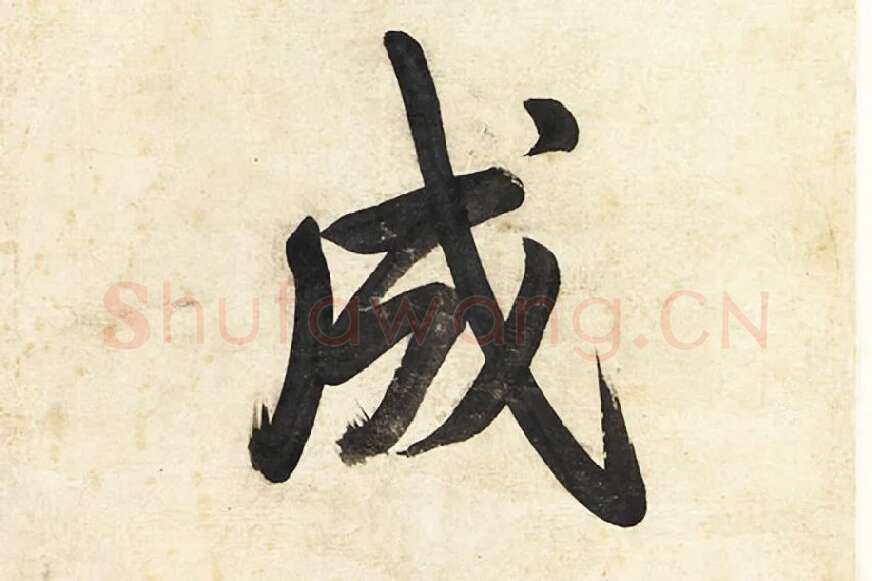 成
Shufawang.CN